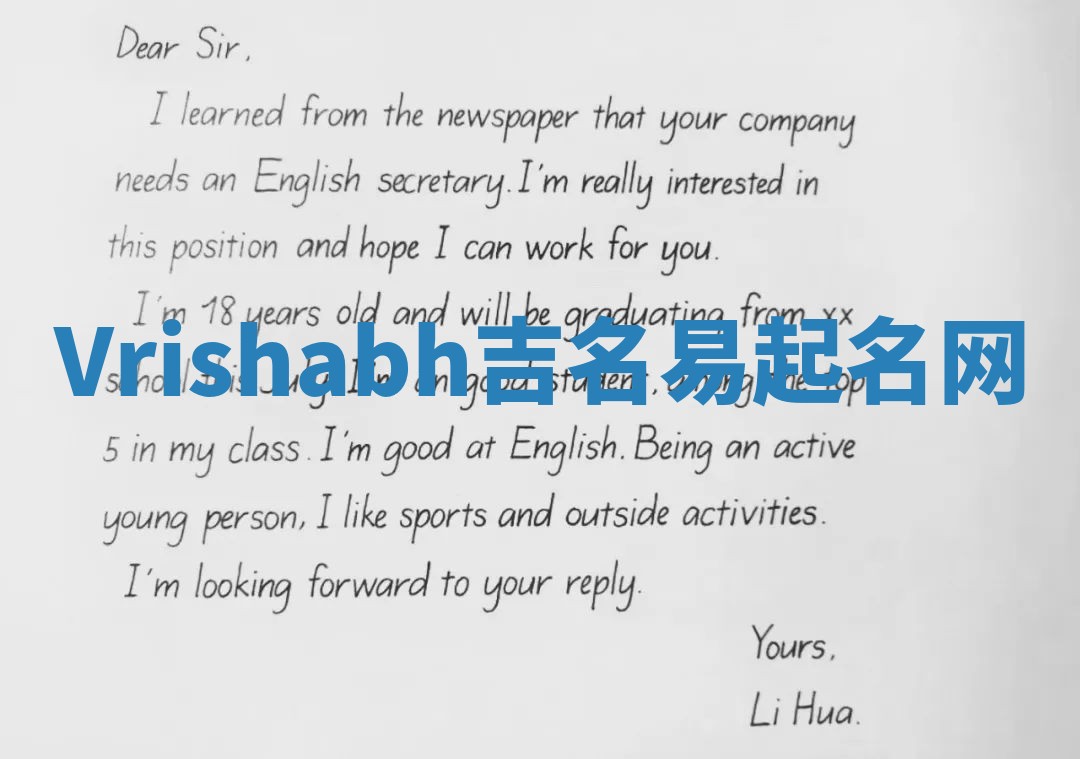 Dear Sir,
I learned from the newspaper that your company
needs an English secretary. I'm really interested in
this position and hope I can work for you.
I'm 18 years old and will be graduating from xx
Vrishabh吉名易起名网
school this July. I'm an good student, among the top
5 in my class. I'm good at English. Being an active
young person, I like sports and outside activities.
I'm looking forward to your reply.
Yours,
Li Hua.